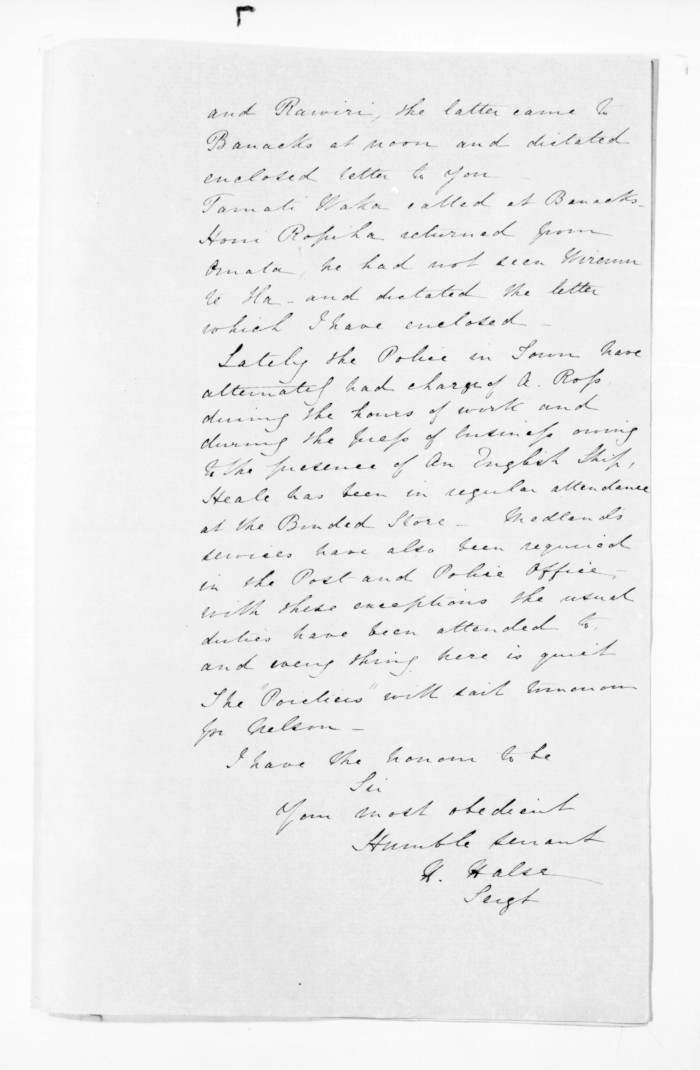 and Rawiri, the latter came to
Barracks at noon and dictated
enclosed letter to you -
Tamati Waka called at Barracks -
Honi Ropiha returned from
Omata, he had not seen Wiremu
te Ha - and dictated the letter
which I have enclosed -
Lately the Police in Town have
alternately had charge of A. Ross
during the hours of work and
during the press of business owing
to the presence of an English Ship,
Heale has been in regular attendance
at the Bonded Store - Medland's
services have also been required
in the Post and Police Office -
with these exceptions the usual
duties have been attended to,
and every thing here is quiet
The will sail tomorrow
for Nelson -
I have the honour to be
Sir
Your most obedient
Humble servant
H. Halse
Sergt